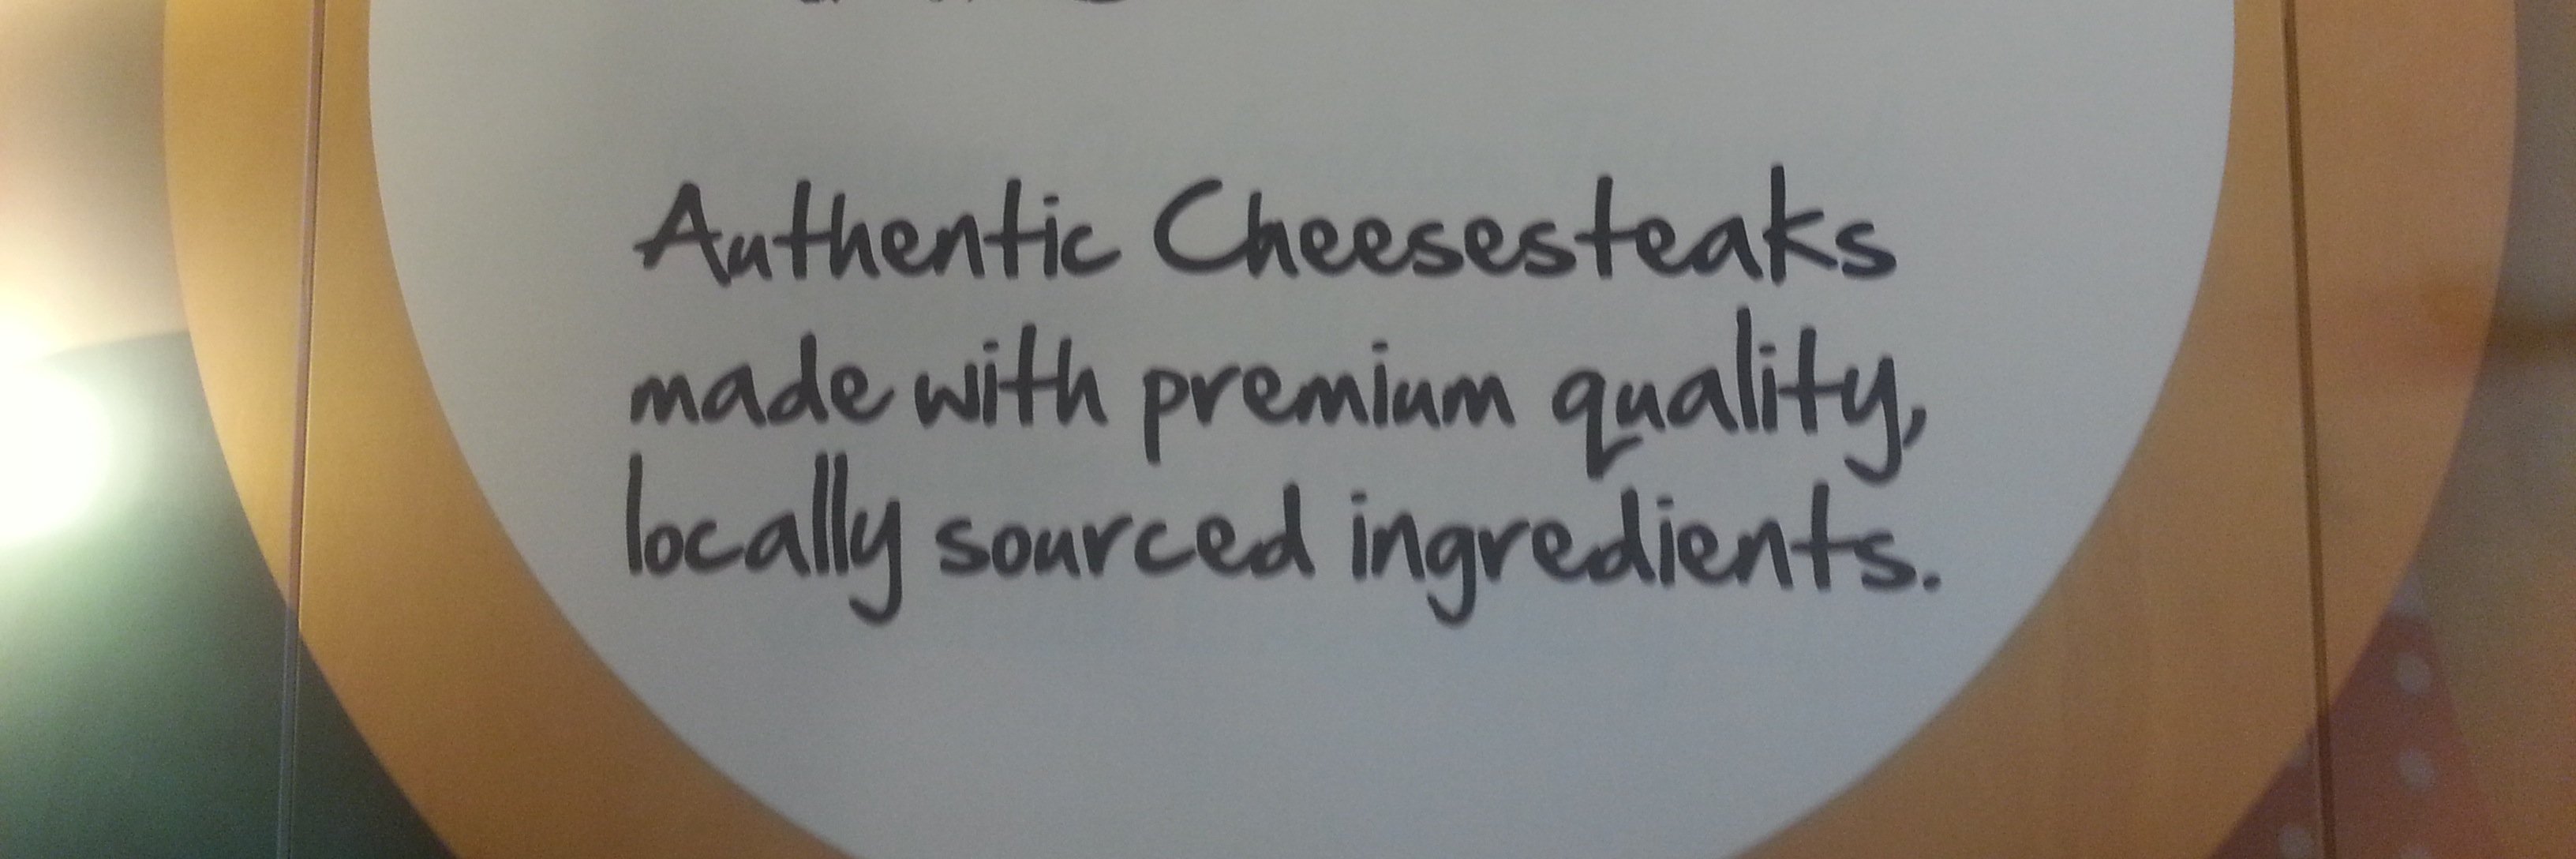 Authentic Cheesesteaks
made with premium quality,
locally sourced ingredients.